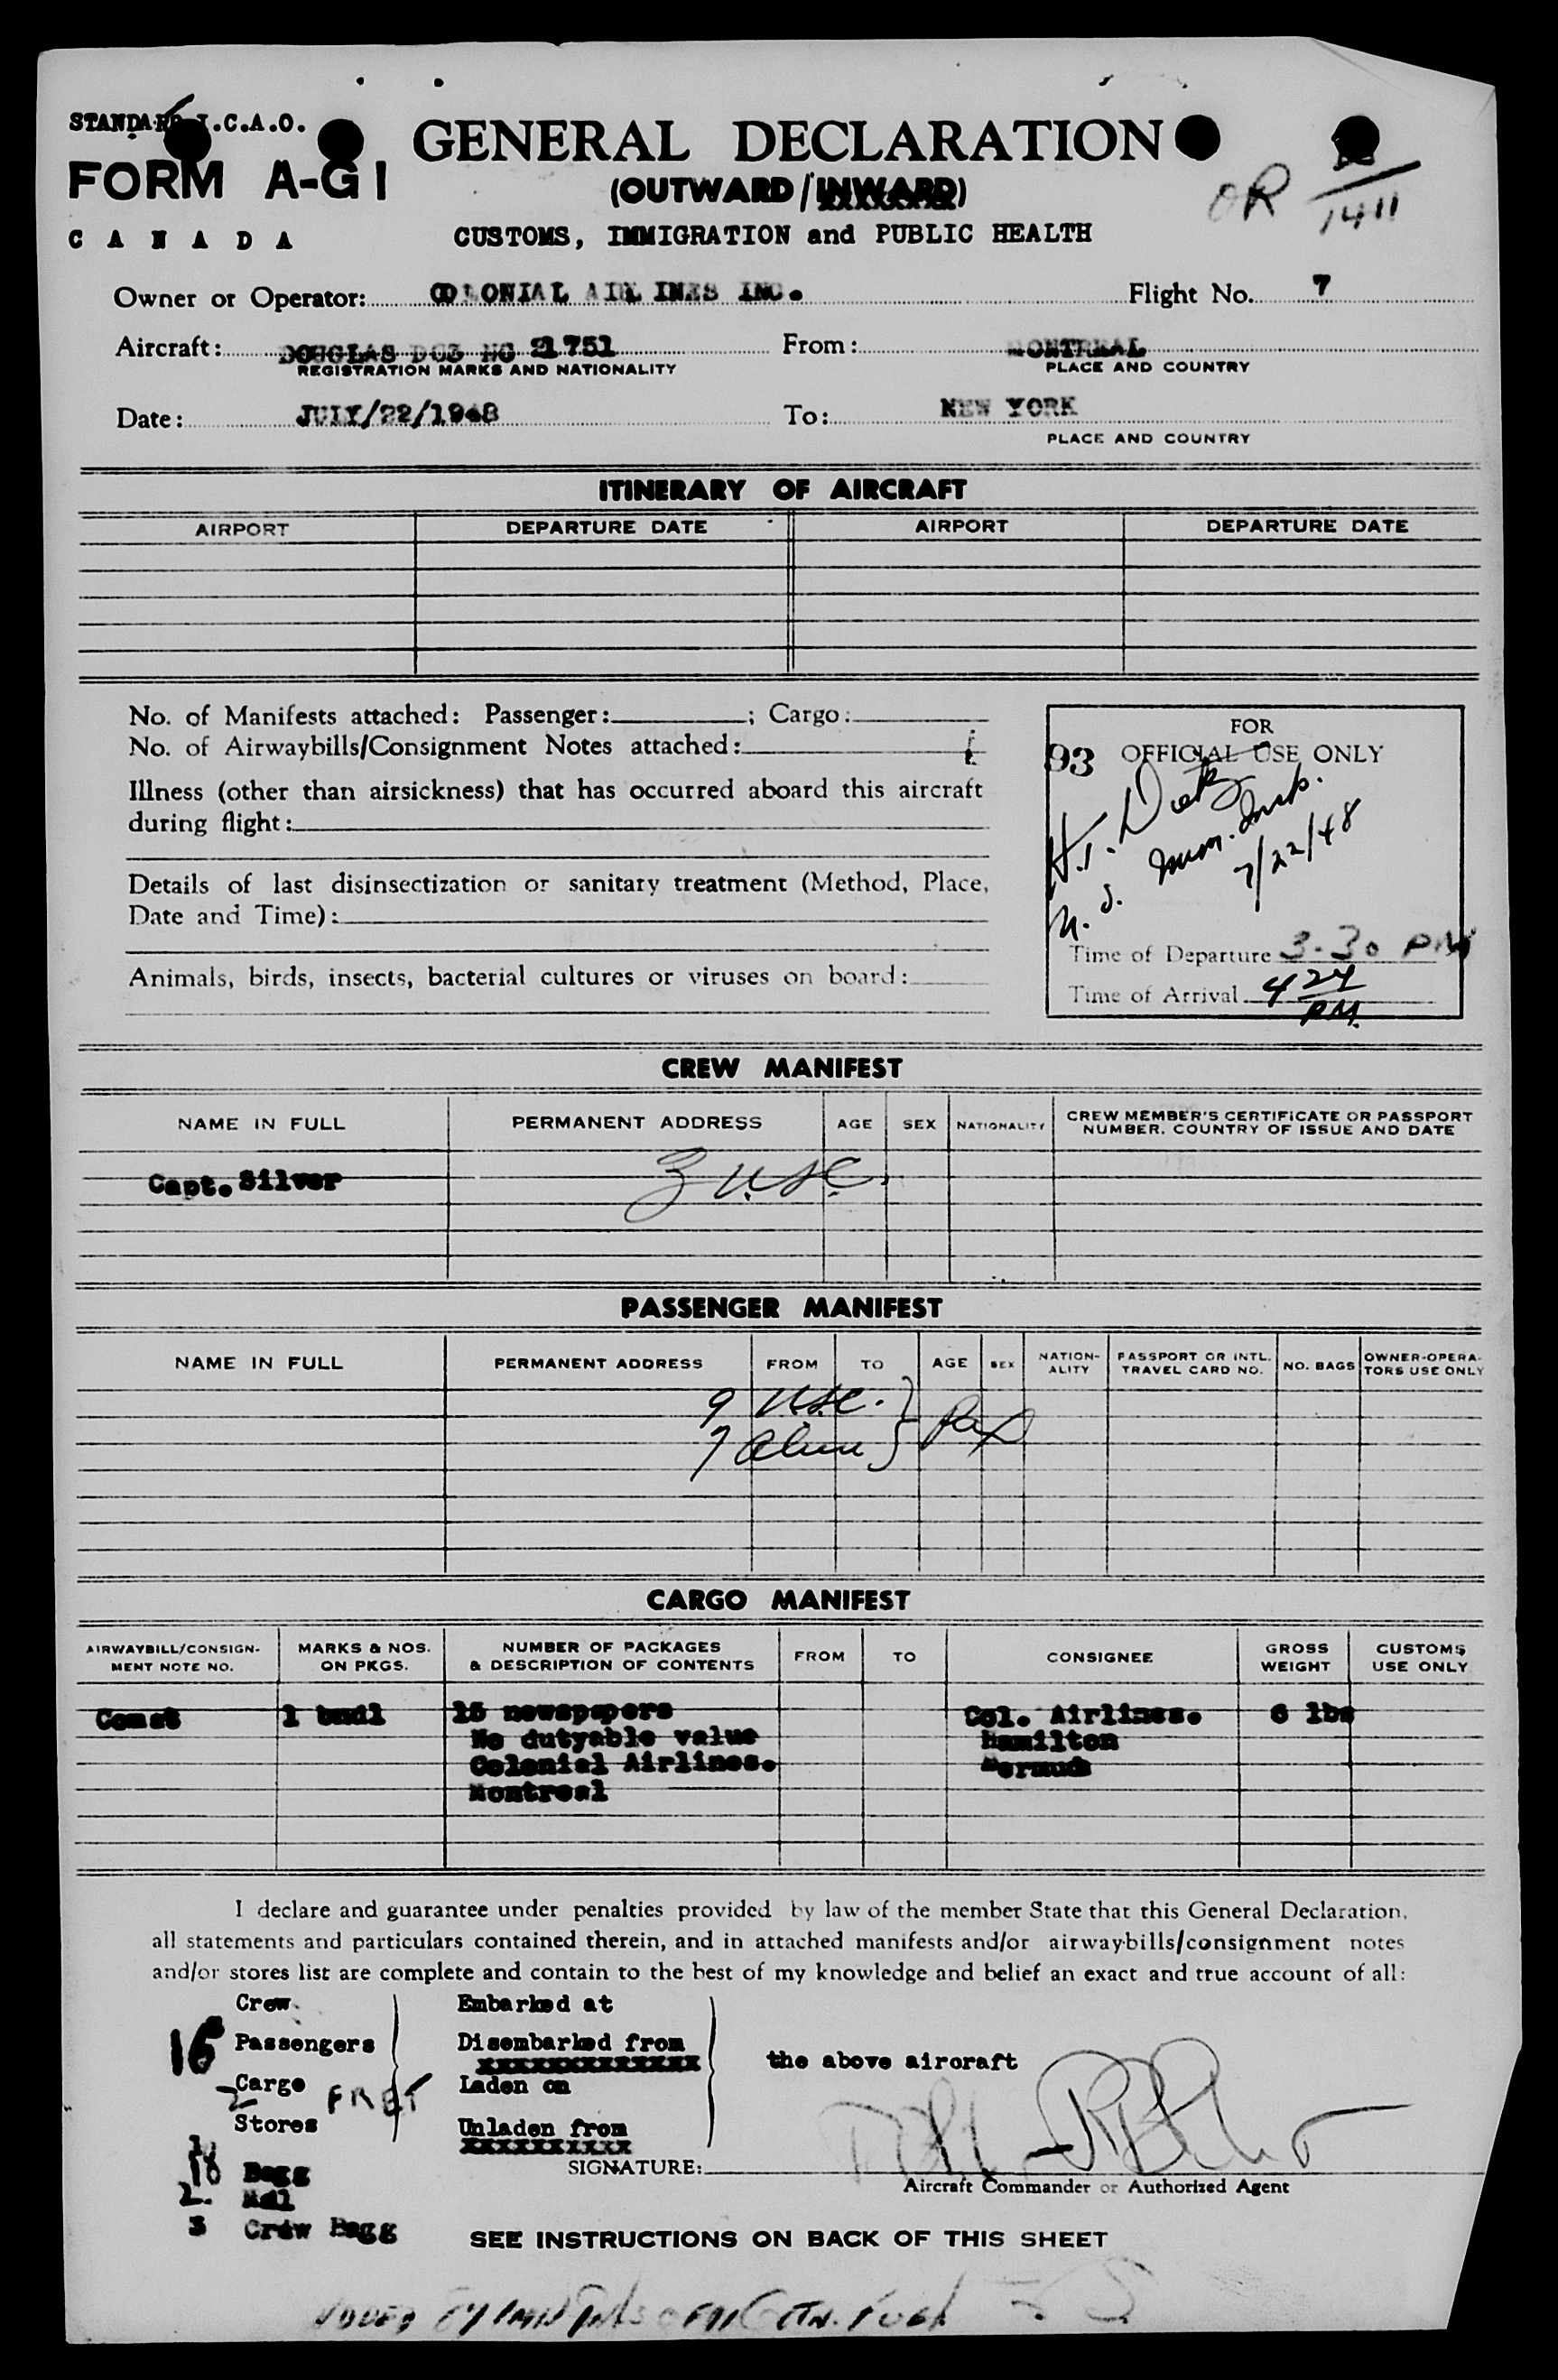 STANDARD I.C.A.O.
FORM A-G1
CANADA
GENERAL DECLARATION
(OUTWARD/INWARD)
CUSTOMS, IMMIGRATION and PUBLIC HEALTH
OR 1411
Owner or Operator: COLONIAL AIRLINES INC. Flight No. 7
Aircraft: DOUGLAS DC3 NC 21751 From: MONTREAL
REGISTRATION MARKS AND NATIONALITY PLACE AND COUNTRY
Date: JULY/22/1948 To: NEW YORK
PLACE AND COUNTRY
ITINERARY OF AIRCRAFT
AIRPORT DEPARTURE DATE AIRPORT DEPARTURE DATE
No. of Manifests attached: Passenger: ; Cargo:
No. of Airwaybills/Consignment Notes attached:
Illness (other than airsickness) that has occurred aboard this aircraft
during flight:
Details of last disinsectization or sanitary treatment (Method, Place,
Date and Time):
Animals, birds, insects, bacterial cultures or viruses on board:
FOR
93 OFFICIAL USE ONLY
U.S. Imm. Insp.
7/22/48
Time of Departure 3-30 PM
Time of Arrival 4 24 PM.
CREW MANIFEST
NAME IN FULL PERMANENT ADDRESS AGE SEX NATIONALITY CREW MEMBER'S CERTIFICATE OR PASSPORT
NUMBER, COUNTRY OF ISSUE AND DATE
Capt. Silver 3 USC.
PASSENGER MANIFEST
NAME IN FULL PERMANENT ADDRESS FROM TO AGE SEX NATION-
ALITY PASSPORT OR INTL.
TRAVEL CARD NO. NO. BAGS OWNER-OPERA-
TORS USE ONLY
9 USC.
7 Alien } Pax
CARGO MANIFEST
AIRWAYBILL/CONSIGN-
MENT NOTE NO. MARKS & NOS.
ON PKGS. NUMBER OF PACKAGES
& DESCRIPTION OF CONTENTS FROM TO CONSIGNEE GROSS
WEIGHT CUSTOMS
USE ONLY
Comat 1 bndl 15 newspapers Col. Airlines. 6 lbs
No dutyable value Hamilton
Colonial Airlines. Bermuda
Montreal
I declare and guarantee under penalties provided by law of the member State that this General Declaration,
all statements and particulars contained therein, and in attached manifests and/or airwaybills/consignment notes
and/or stores list are complete and contain to the best of my knowledge and belief an exact and true account of all:
Crew Embarked at
16 Passengers Disembarked from
the above aircraft
2 Cargo FRET Laden on
Stores Unladen from
SIGNATURE:
Aircraft Commander or Authorized Agent
18 Bagg
2. Mail
3 Crew Bagg
SEE INSTRUCTIONS ON BACK OF THIS SHEET